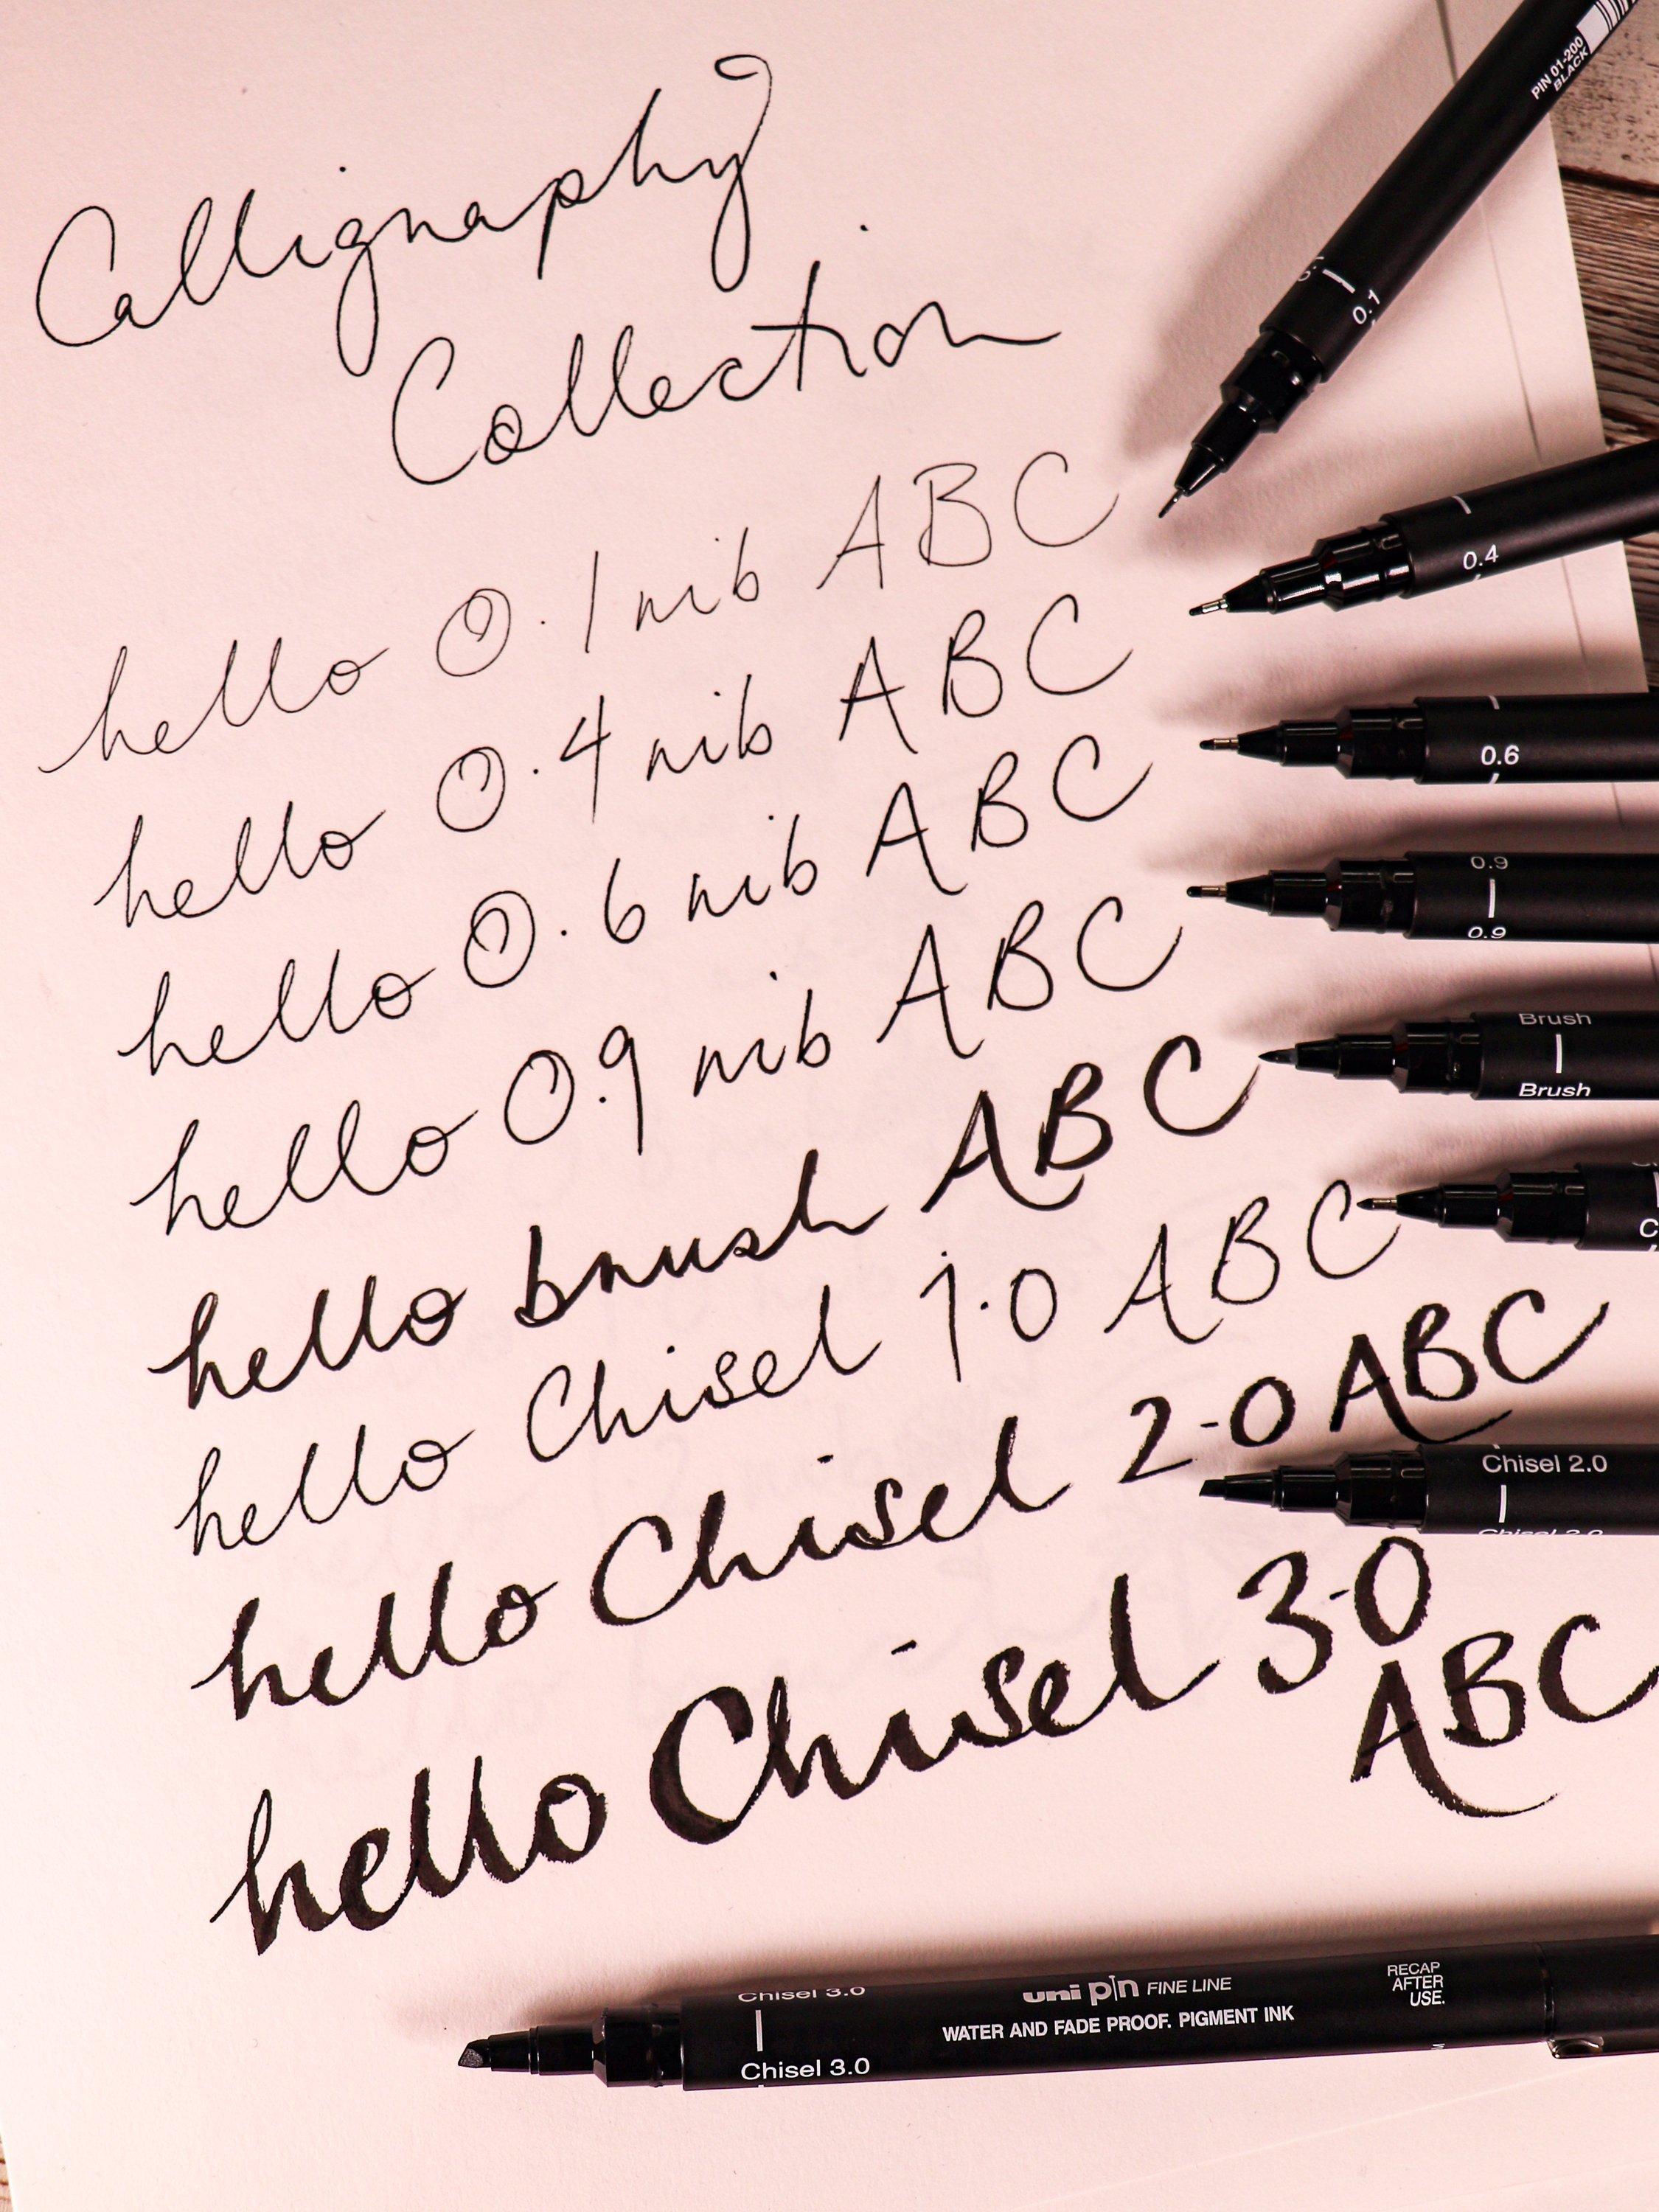 Calligraphy
Collection
hello 0.1 nib ABC
hello 0.4 nib ABC
hello 0.6 nib ABC
hello 0.9 nib ABC
hello brush ABC
hello Chisel 1.0 ABC
hello Chisel 2.0 ABC
hello Chisel 3.0
ABC
PIN 01-200
BLACK
0.1
0.4
0.6
0.9
0.9
Brush
Brush
Chisel 2.0
Chisel 2.0
Chisel 3.0
Chisel 3.0
uni pin FINE LINE
WATER AND FADE PROOF. PIGMENT INK
RECAP
AFTER
USE.